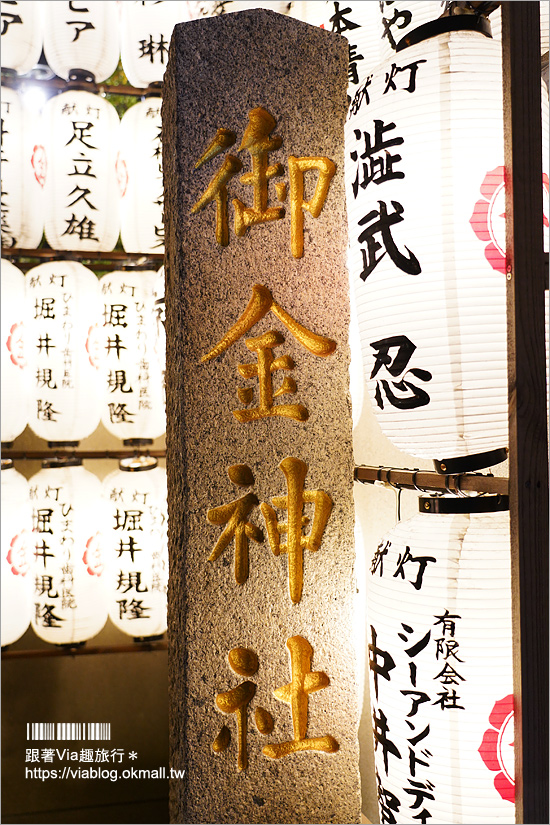 御金神社
献灯
足立久雄
献灯
澁武 忍
献灯
ひまわり歯科医院
堀井規隆
献灯
ひまわり歯科医院
堀井規隆
献灯
ひまわり歯科医院
堀井規隆
献灯
堀井規隆
献灯
有限会社
シーアンドディ
中井
跟著Via趣旅行＊
https://viablog.okmall.tw